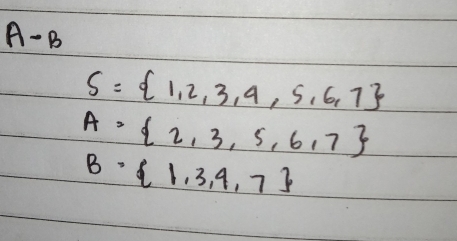 A-B
S = { 1,2,3,4, 5,6,7}
A = { 2, 3, 5, 6, 7}
B = { 1,3,4, 7 }